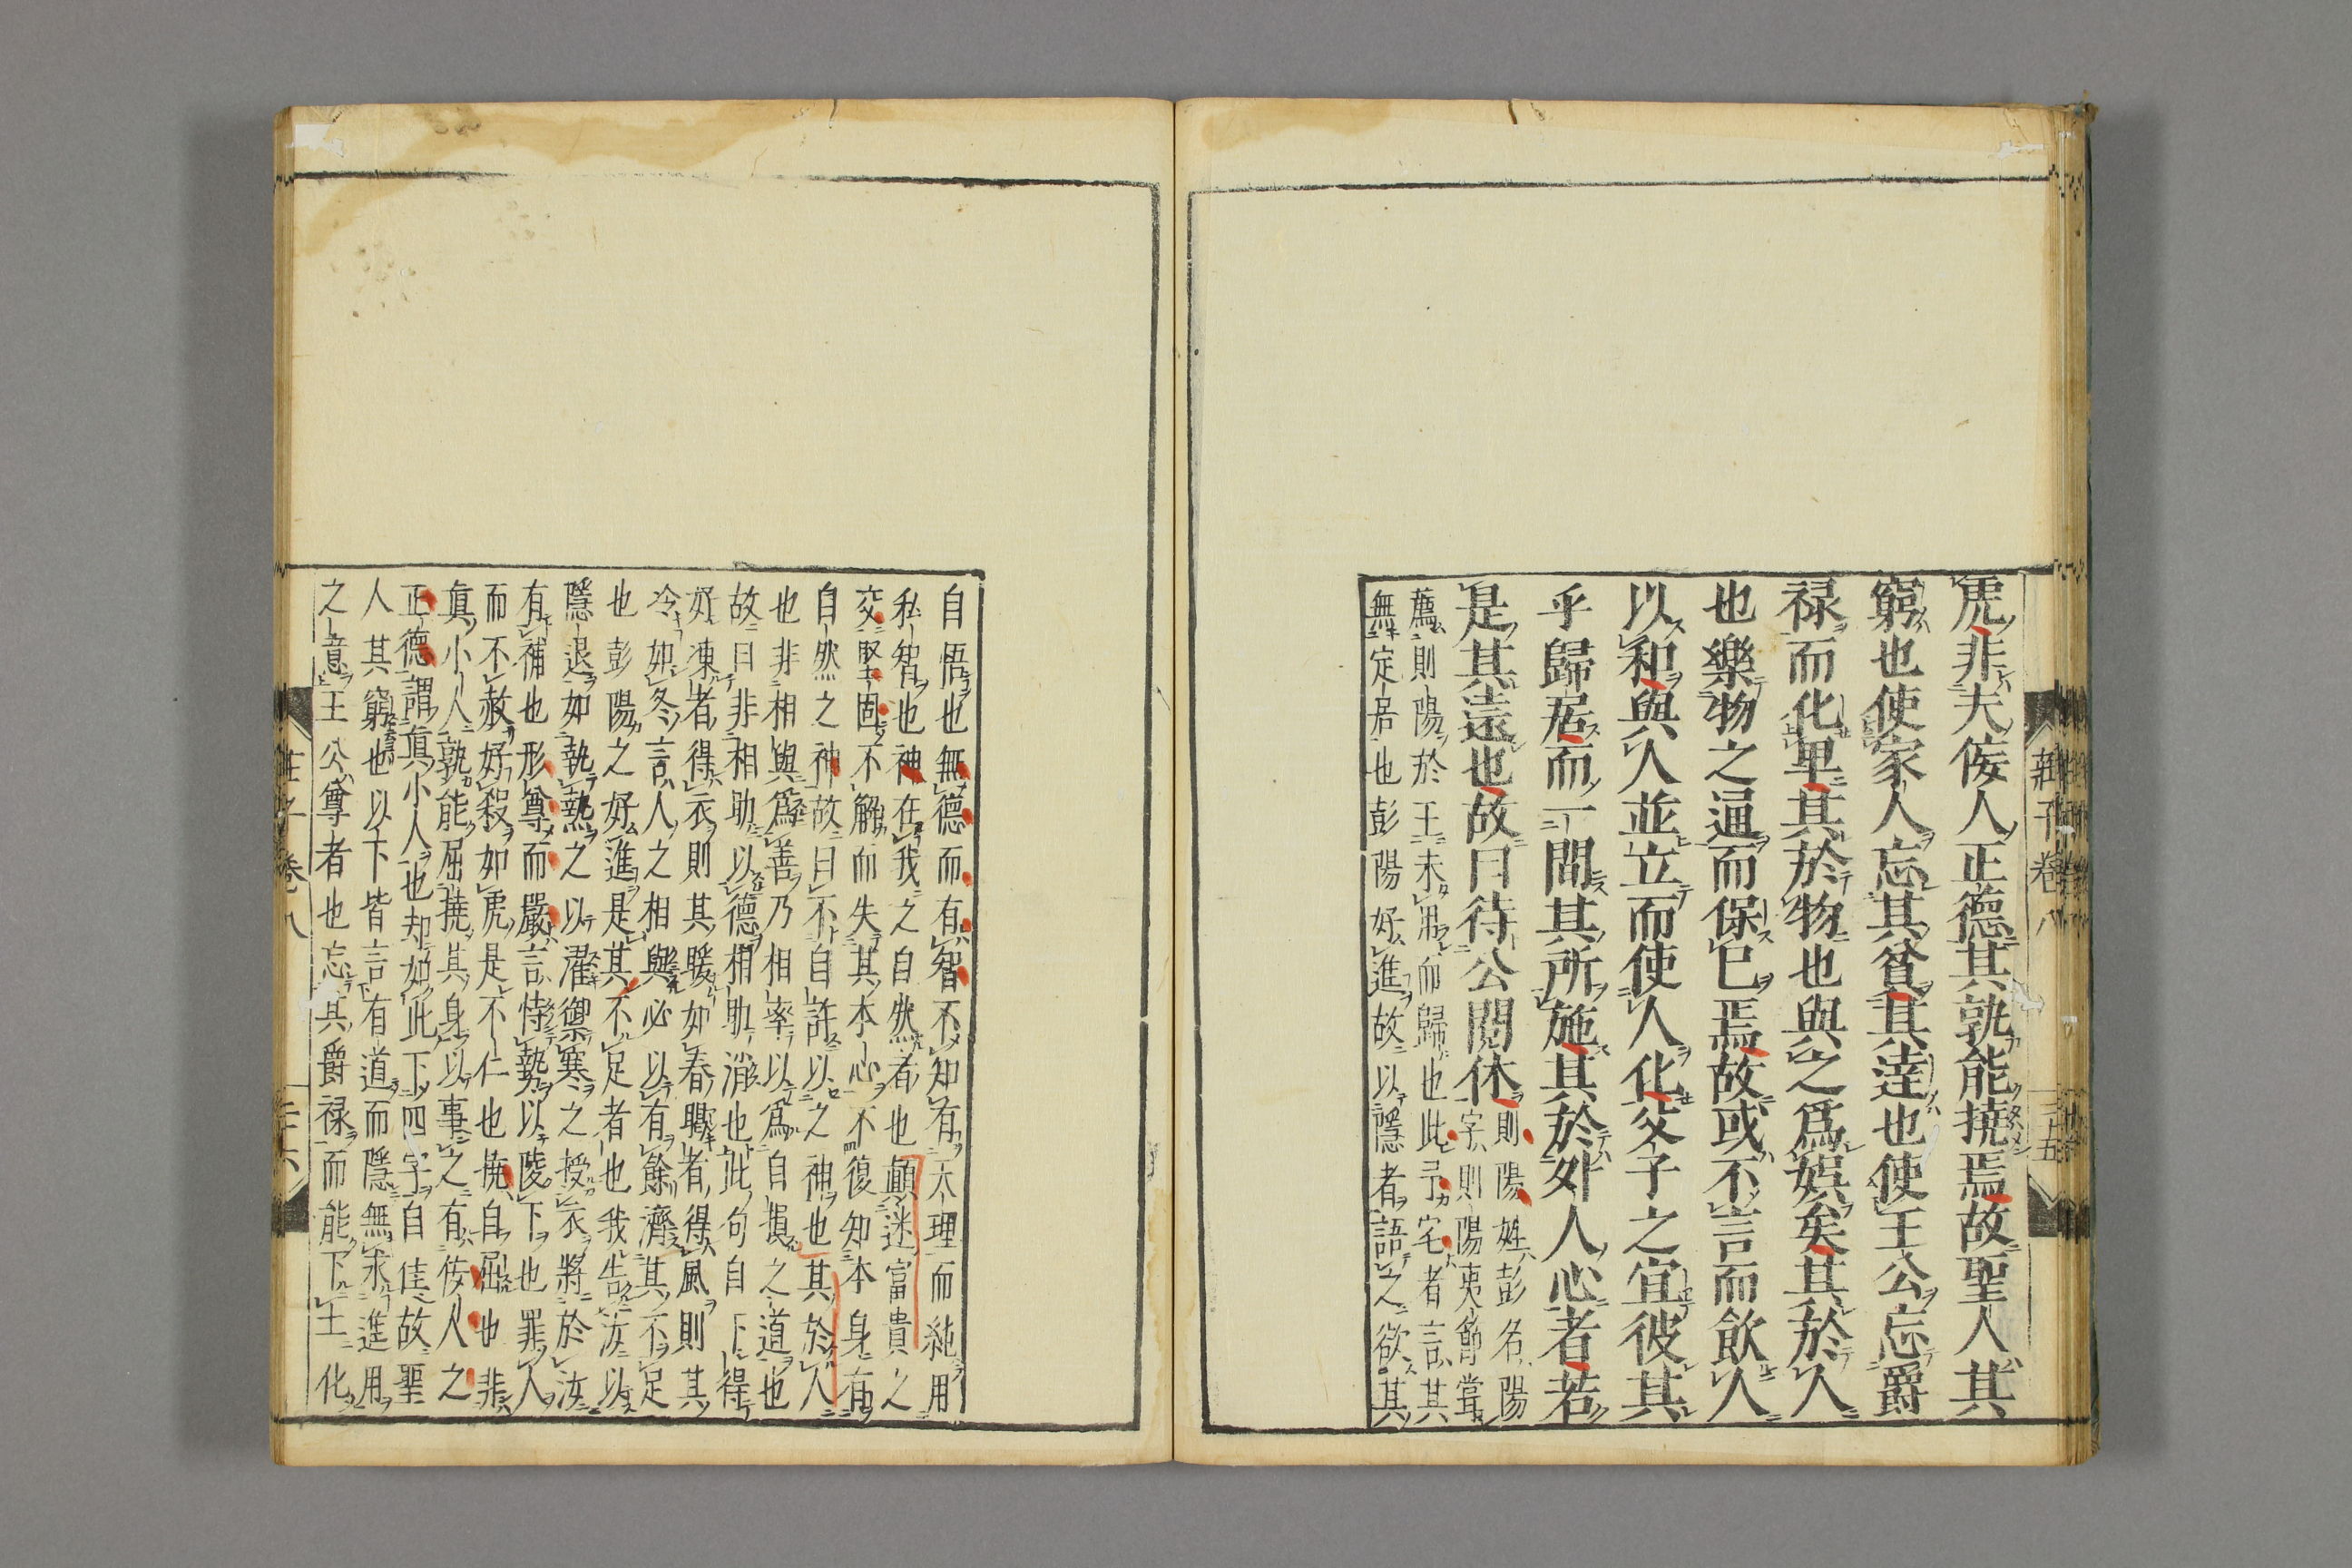 虎非夫佞人正德其孰能撓焉故聖人其
窮也使家人忘其貧其達也使王公忘爵
禄而化卑其於物也與之爲娯矣其於人
也樂物之通而保已焉故或不言而飲人
以和與人並立而使人化父子之宜彼其
乎歸居而一間其所施其於人心者若
是其遠也故曰待公閲休則陽姓彭名陽
字則陽夷節嘗
薦則陽於王未用而歸也此予宅者言其
無定居也彭陽好進故以隱者語之欲其
莊子卷八
二十五
自悟也無德而有智不知有天理而純用
私智也神在我之自然者也顛迷富貴之
交堅固不解而失其本心不復知本身有
自然之神故曰不自許以之神也其於人
也非相與爲善乃相率以爲自損之道也
故曰非相助以德相助消也此句自下得
好凍者得衣則其暖如春暍者得風則其
冷如冬言人之相與必以有餘濟其不足
也彭陽之好進是其不足者也我告汝以
隱退如執熱之以濯禦寒之授衣將於汝
有補也形尊而嚴言恃勢以陵下也罪人
而不赦好殺如虎是不仁也撓自屈也非
眞小人孰能屈撓其身以事之有佞人之
正德謂眞小人也却如此下四字自佳故聖
人其窮也以下皆言有道而隱無求進用
之意王公尊者也忘其爵禄而能下士化
莊子 卷八
二十六